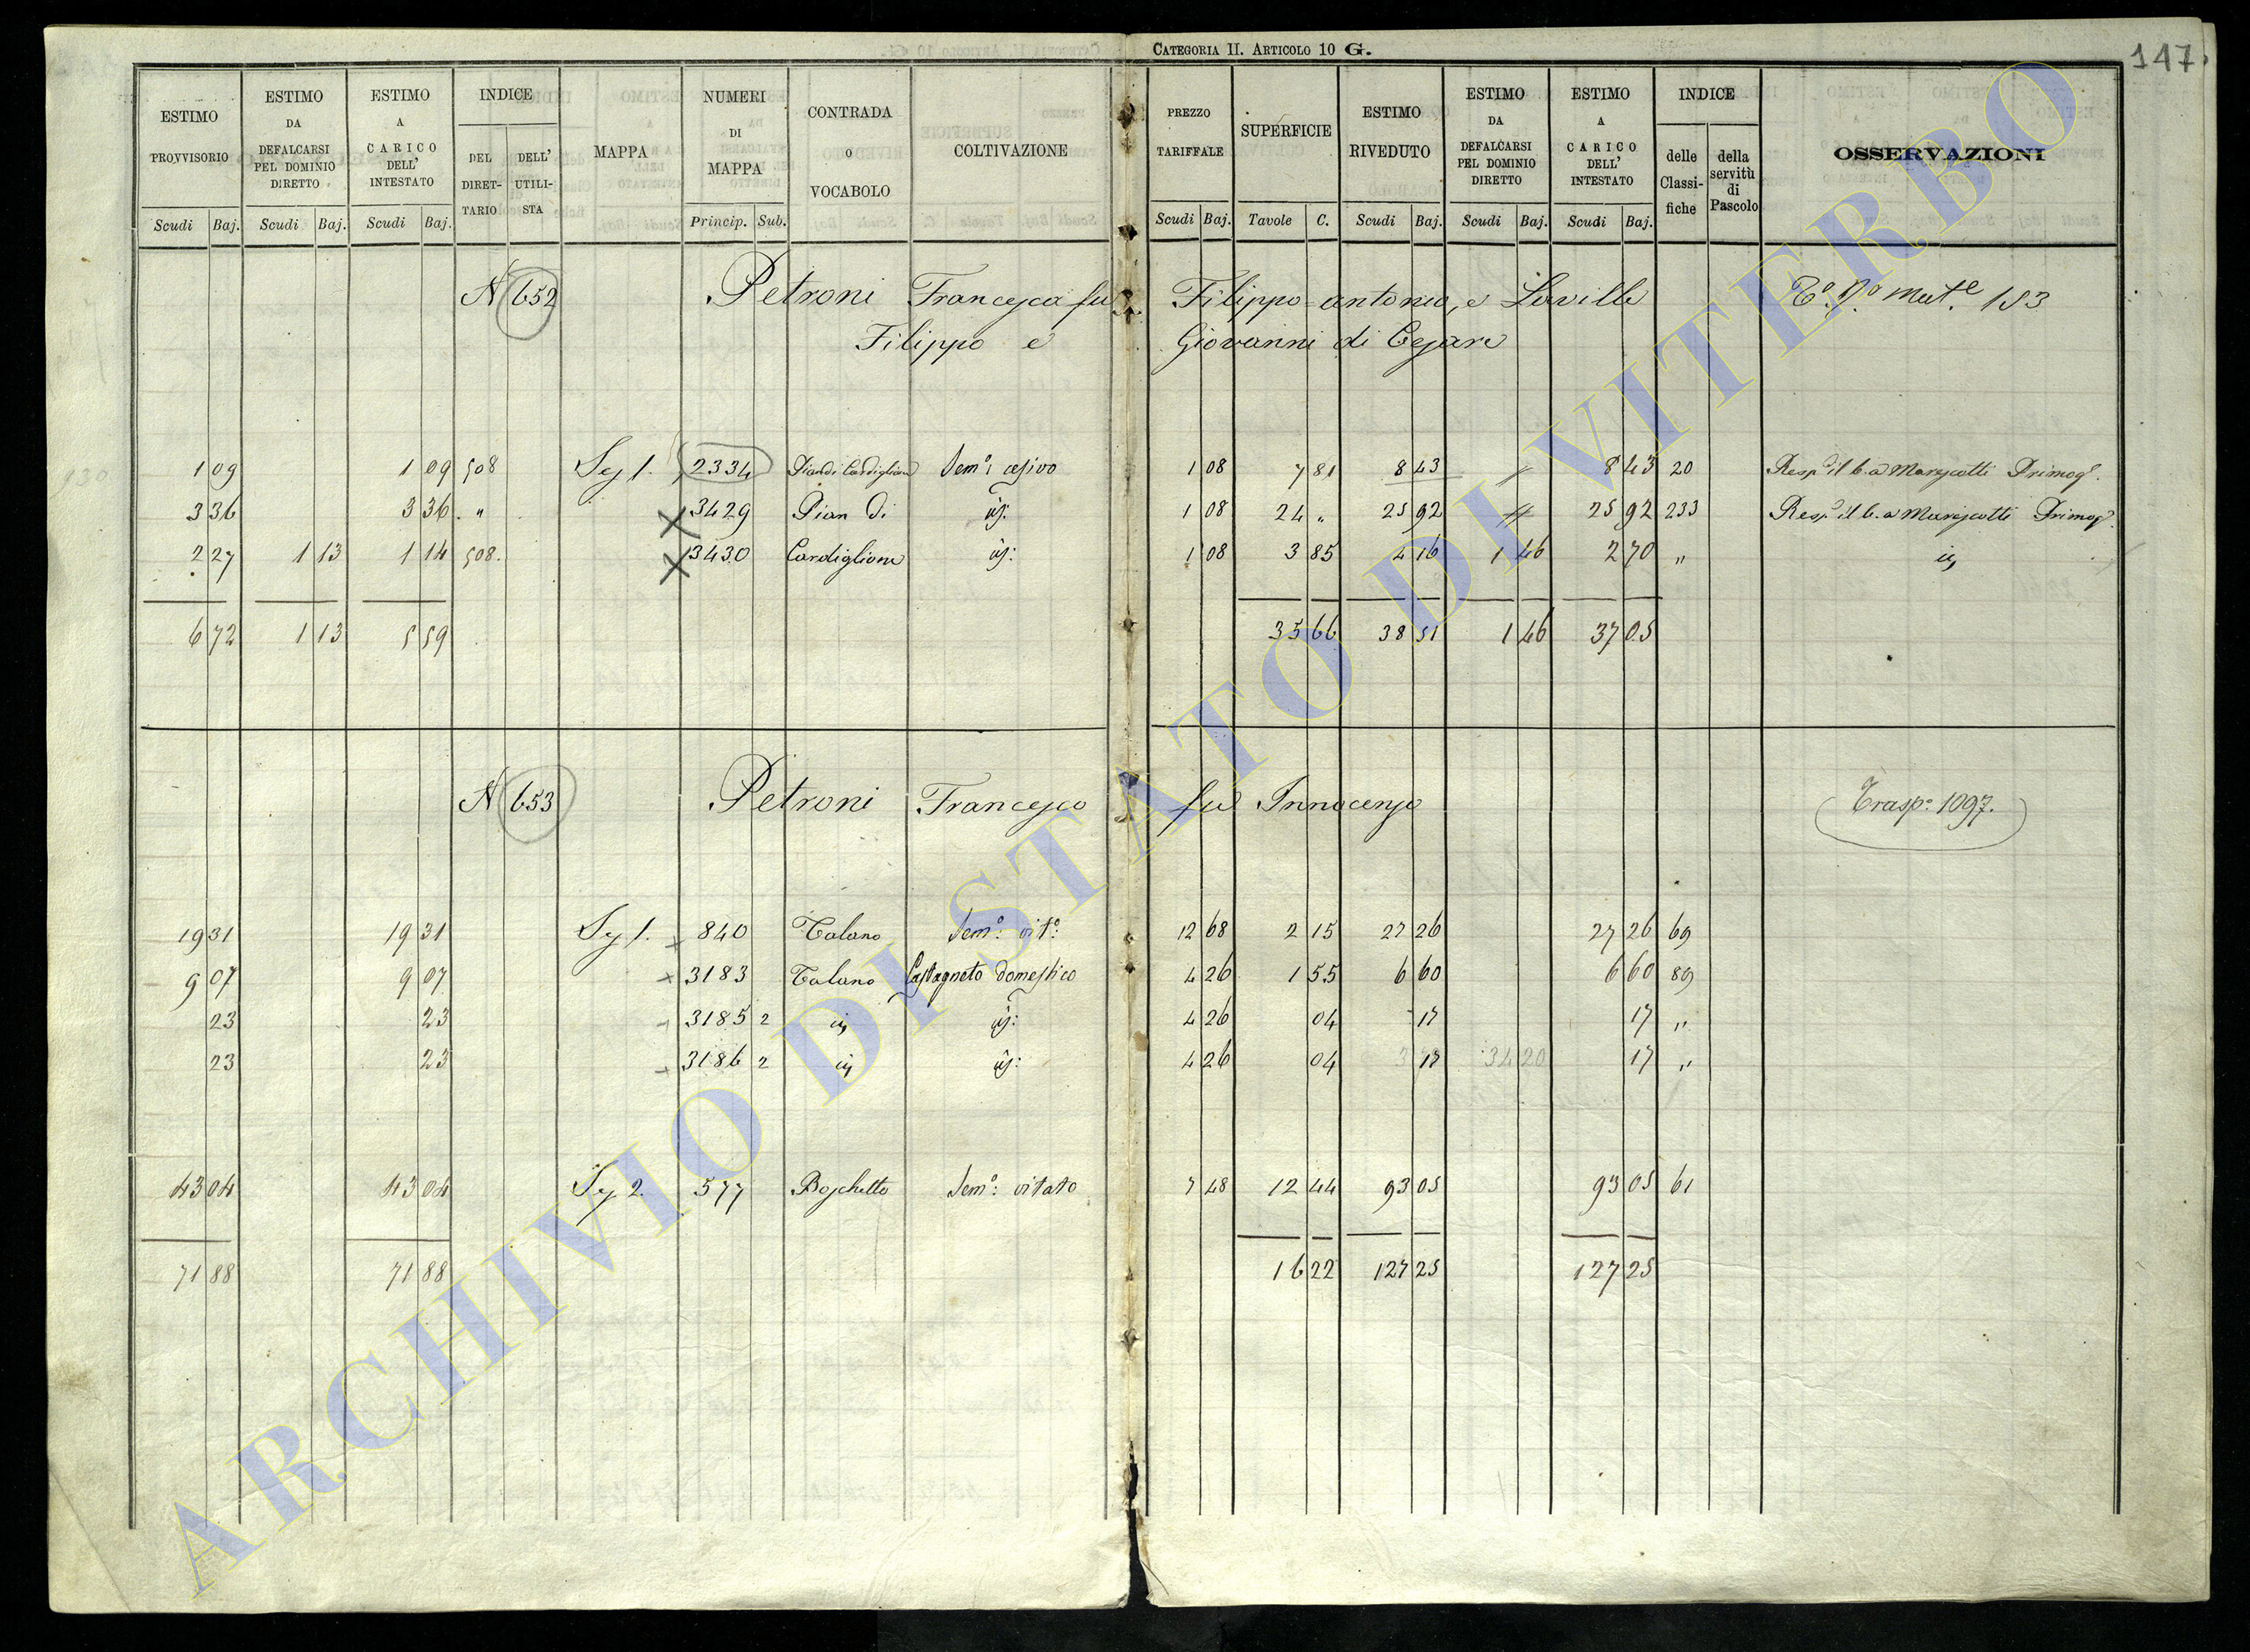 CATEGORIA II. ARTICOLO 10 G.
147.
ESTIMO PROVVISORIO | ESTIMO DA DEFALCARSI PEL DOMINIO DIRETTO | ESTIMO A CARICO DELL' INTESTATO | INDICE DEL DIRETTARIO | DELL' UTILISTA | MAPPA | NUMERI DI MAPPA | CONTRADA O VOCABOLO | COLTIVAZIONE | PREZZO TARIFFALE | SUPERFICIE | ESTIMO RIVEDUTO | ESTIMO DA DEFALCARSI PEL DOMINIO DIRETTO | ESTIMO A CARICO DELL' INTESTATO | INDICE delle Classifiche | della servitù di Pascolo | OSSERVAZIONI
Scudi Baj. Scudi Baj. Scudi Baj. Princip. Sub. Scudi Baj. Tavole C. Scudi Baj. Scudi Baj. Scudi Baj.
N 652 Petroni Francesca fu Filippo antonio, e 153
Filippo e Giovanni di Cesare
1 09 1 09 508 Sez 1. 2334 Sem: cesivo 1 08 7 81 8 43 8 43 20 Marescotti Primog.
3 36 3 36 " 3429 Pian di id: 1 08 24 " 25 92 25 92 233 Marescotti Primog.
2 27 1 13 1 14 508. 3430 Cardiglione id: 1 08 3 85 4 16 1 46 2 70 " id
6 72 1 13 5 59 35 66 38 51 1 46 37 05
N 653 Petroni Francesco fu Innocenzo Trasp: 1097.
19 31 19 31 Sez 1. 840 Talano Sem: vit: 12 68 2 15 27 26 27 26 69
9 07 9 07 3183 Talano Castagneto domestico 4 26 1 55 6 60 6 60 89
23 23 3185 2 id id: 4 26 04 17 17 "
23 23 3186 2 id id: 4 26 04 17 34 20 17 "
43 04 43 04 Sez 2. 577 Boschetto Sem: vitato 7 48 12 44 93 05 93 05 61
71 88 71 88 16 22 127 25 127 25
ARCHIVIO DI STATO DI VITERBO